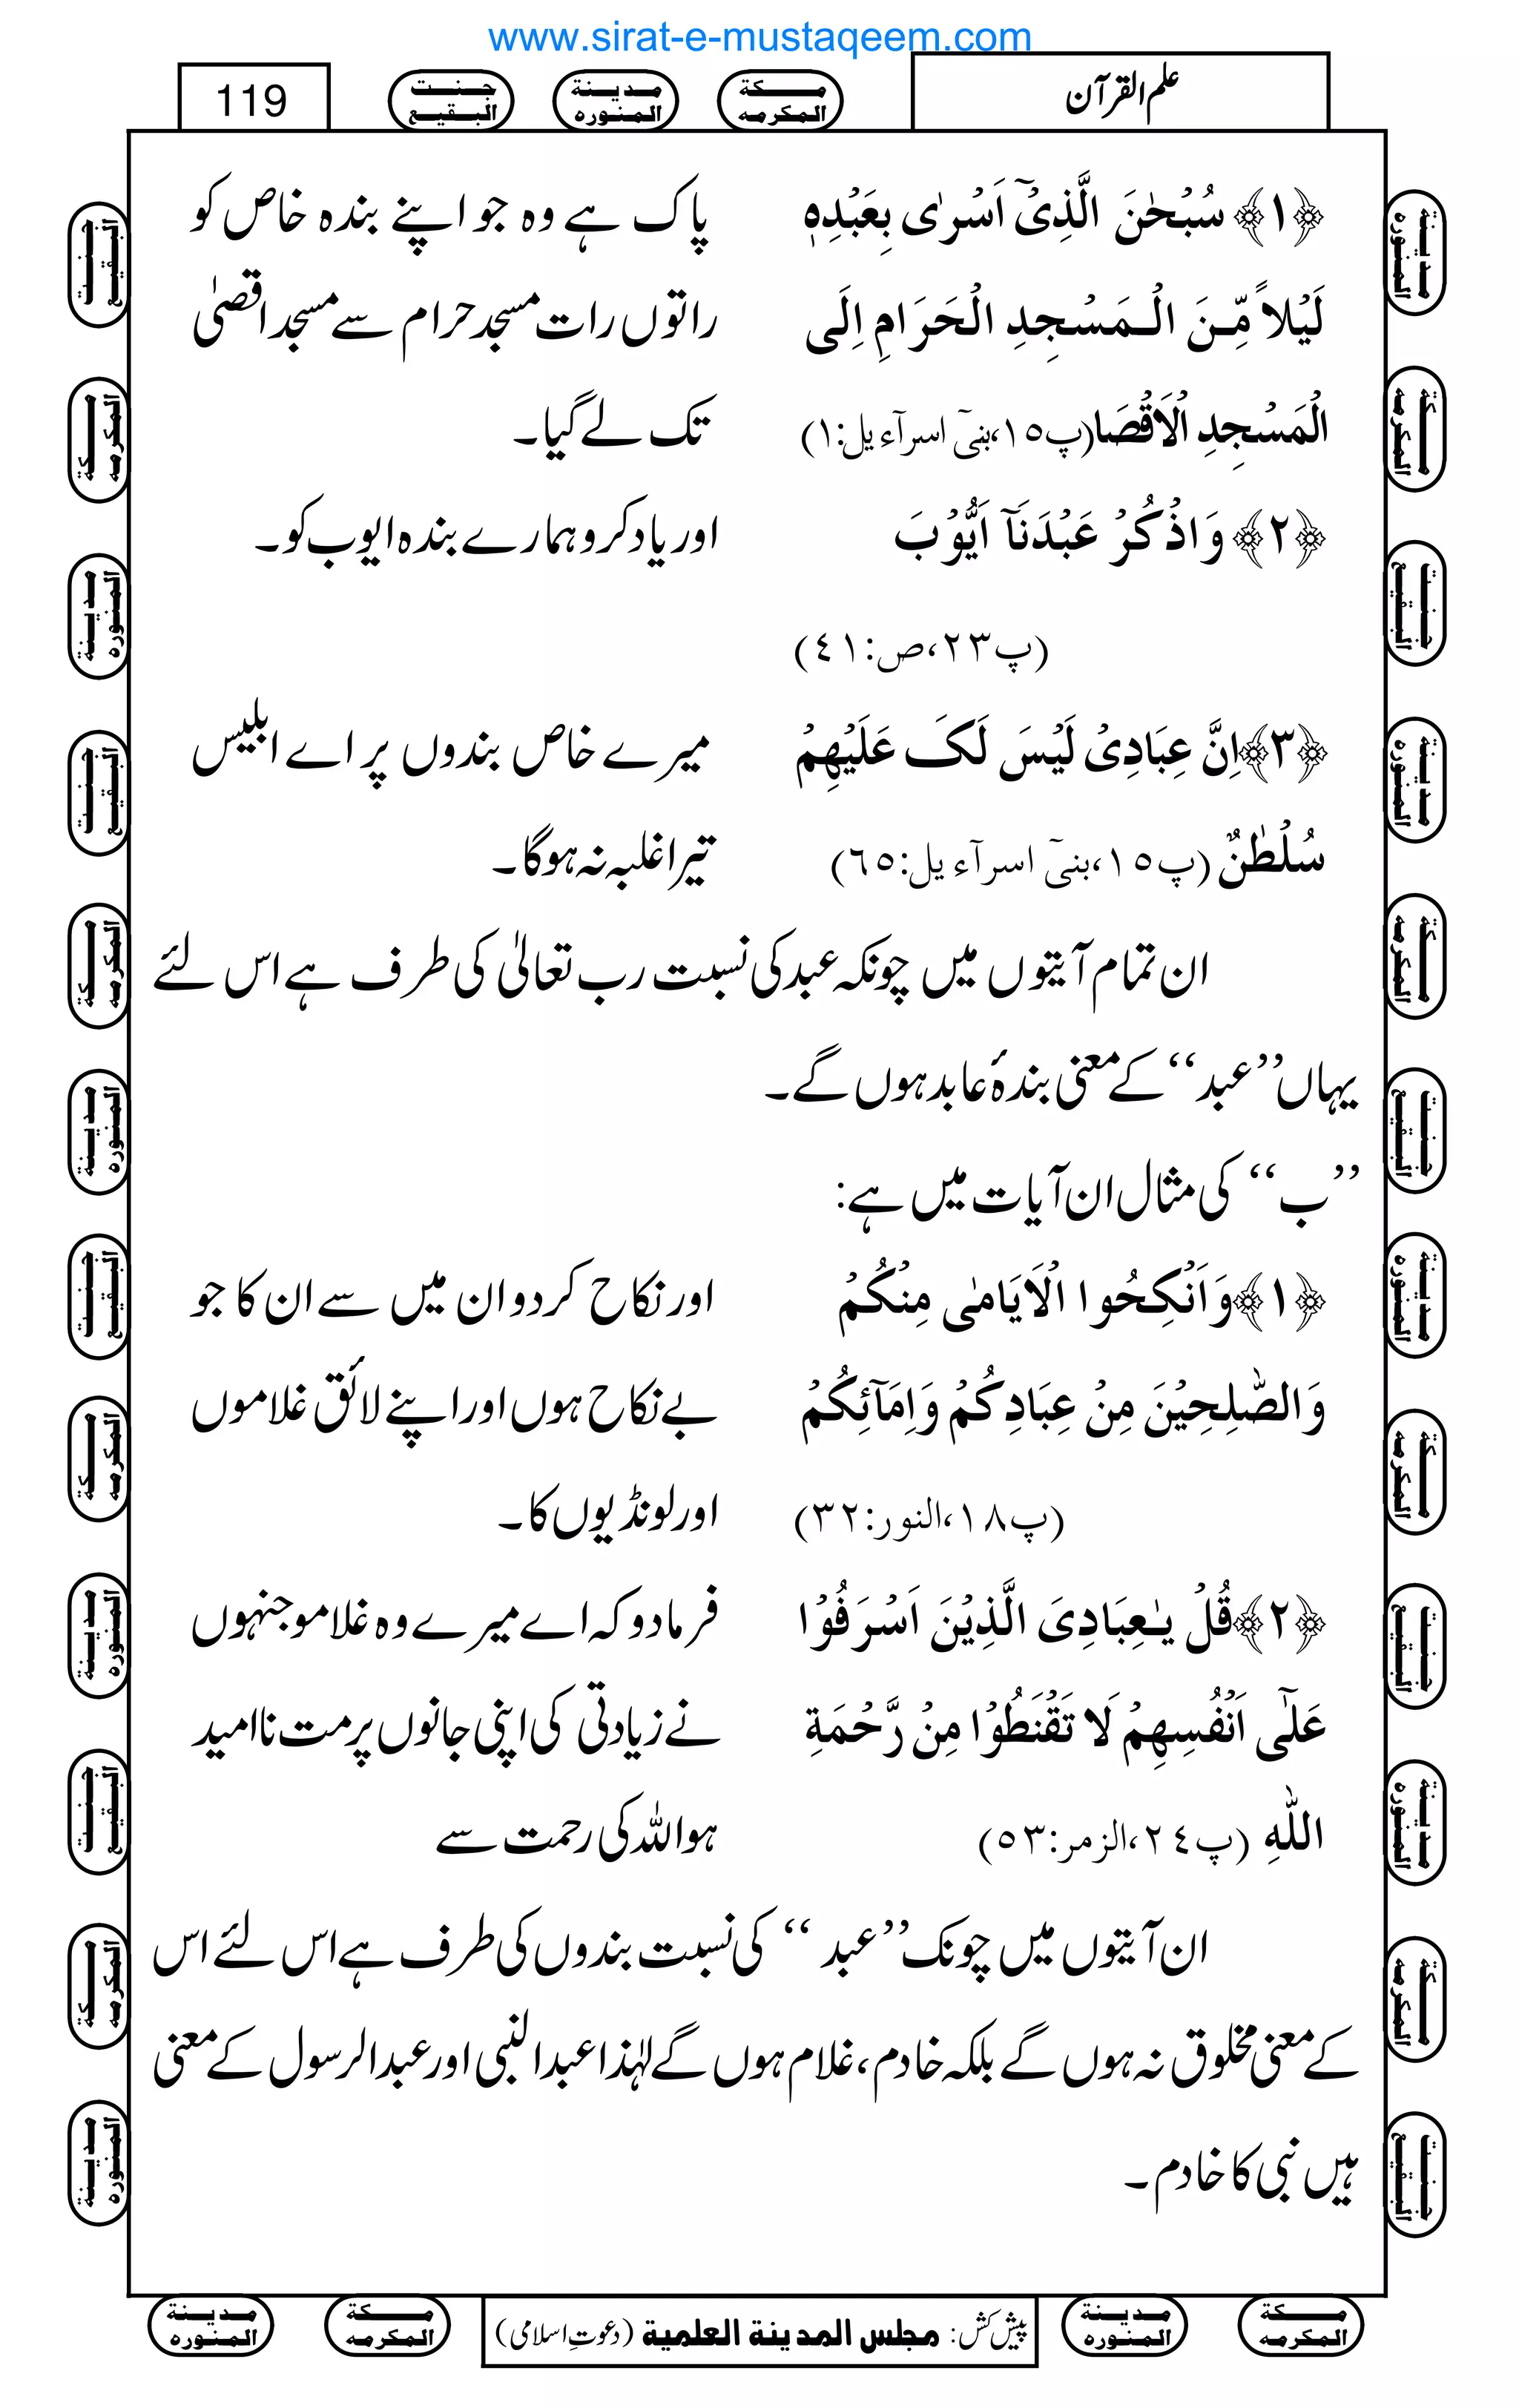 www.sirat-e-mustaqeem.com
علم القرآن
مکة المکرمه
مدینة المنوره
جنت البقیع
119
﴿١﴾ سُبْحٰنَ الَّذِیْٓ اَسْرٰی بِعَبْدِہٖ
پاک ہے وہ جو اپنے بندہ خاص کو
لَیْلًا مِّنَ الْمَسْجِدِ الْحَرَامِ اِلَی
راتوں رات مسجد حرام سے مسجد اقصیٰ
الْمَسْجِدِ الْاَقْصَا (پ١٥،بنیٓ اسرآء یل:١)
تک لے گیا۔
﴿٢﴾ وَاذْکُرْ عَبْدَنَآ اَیُّوْبَ
اور یاد کرو ہمارے بندہ ایوب کو۔
(پ٢٣،صٓ:٤١)
﴿٣﴾ اِنَّ عِبَادِیْ لَیْسَ لَکَ عَلَیْھِمْ
میرے خاص بندوں پر اے ابلیس
سُلْطٰنٌ (پ١٥،بنیٓ اسرآء یل:٦٥)
تیرا غلبہ نہ ہوگا۔
ان تمام آیتوں میں چونکہ عبد کی نسبت رب تعالیٰ کی طرف ہے اس لئے
یہاں ’’عبد‘‘ کے معنی بندۂ عابد ہوں گے۔
’’ب‘‘ کی مثال ان آیات میں ہے:
﴿١﴾ وَاَنْکِحُوا الْاَیَامٰی مِنْکُمْ
اور نکاح کردو ان میں سے ان کا جو
وَالصّٰلِحِیْنَ مِنْ عِبَادِکُمْ وَاِمَآئِکُمْ
بے نکاح ہوں اور اپنے لائق غلاموں
(پ١٨،النور:٣٢)
اور لونڈیوں کا۔
﴿٢﴾ قُلْ یٰعِبَادِیَ الَّذِیْنَ اَسْرَفُوْا
فرمادو کہ اے میرے وہ غلامو جنہوں
عَلٰٓی اَنْفُسِھِمْ لَا تَقْنَطُوْا مِنْ رَّحْمَةِ
نے زیادتی کی اپنی جانوں پر مت ناامید
اللّٰہِ (پ٢٤،الزمر:٥٣)
ہو اللہ کی رحمت سے
ان آیتوں میں چونکہ ’’عبد‘‘ کی نسبت بندوں کی طرف ہے اس لئے اس
کے معنی مخلوق نہ ہوں گے بلکہ خادم، غلام ہوں گے لہٰذا عبدالنبی اور عبدالرسول کے معنی
ہیں نبی کا خادم۔
پیش کش: مجلس المدینة العلمیة (دعوتِ اسلامی)